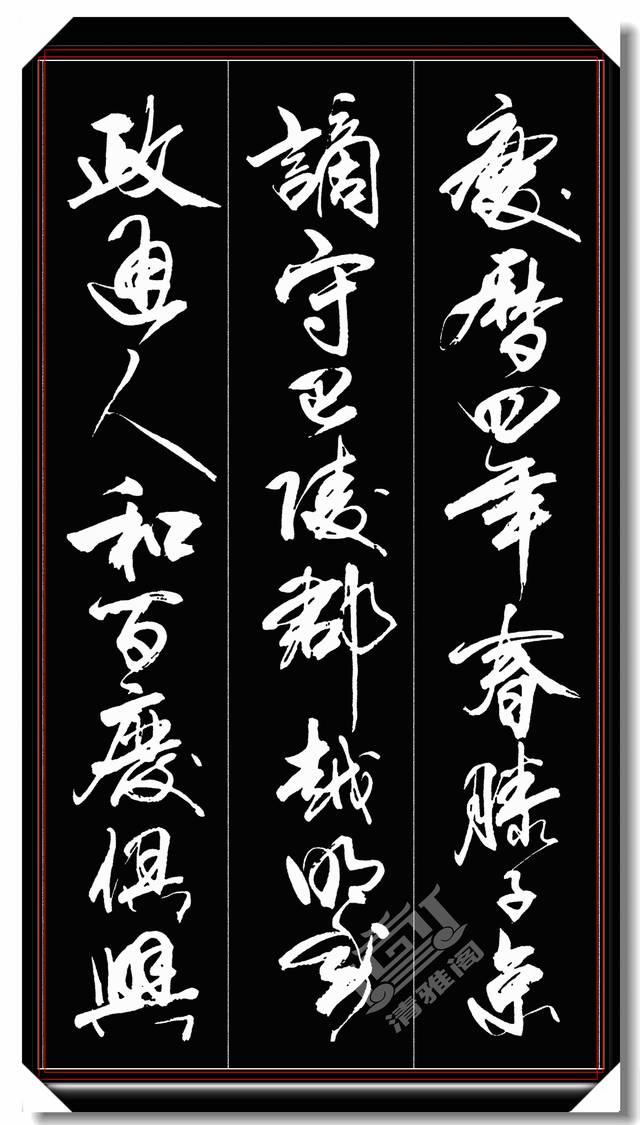 慶曆四年春滕子京
謫守巴陵郡越明年
政通人和百廢俱興
清雅阁